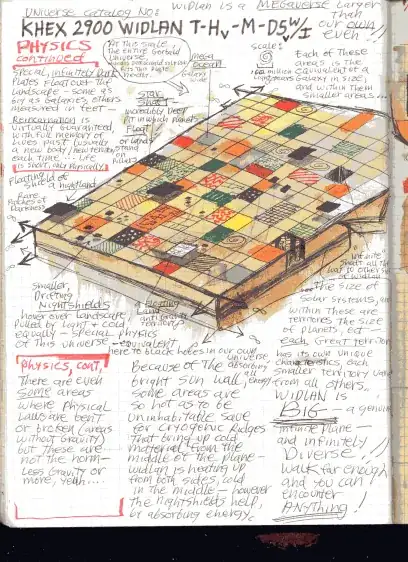 UNIVERSE CATALOG NO:
WIDLAN IS A MEGAVERSE LARGER
THAN
OUR OWN
EVEN!!
KHEX 2900 WIDLAN T-Hv-M-D5 W/I
PHYSICS
continued
Special, infinitely Dark
Plates Float over the
Landscape - some as
big as Galaxies, others
measured in feet -
Reincarnation is
virtually Guaranteed
with full memory of
Lives past (usually
a new body/new territory
each time... Life
is short, only physically
At this scale
the entire
Universe
fits this
scale:
Mega
Ocean
Galaxy
wide
Star
Shaft
incredibly Deep
Pit in which planets
Float
or Land
stand
on
Pillars
Each of these
areas is the
equivalent of a
galaxy in size
and within them
smaller areas...
Floating Id of
Rare
Patches of
Darkness
Smaller,
Drifting
Nightshields
hover over Landscape
pulled by Light & cold
equally - special physics
of this universe - equivalent
here to black holes in our own
Universe
Floating
Landscape,
anti gravity
territory
"infinite"
Shaft all the
way to other side
of widlan
- the size of
Solar systems, and
within those are
territories the size
of planets, etc -
each Great territory
has its own unique
characteristics, each
smaller territory varied
from all others..
WIDLAN IS
BIG - a genuine
infinite Plane -
and infinitely
Diverse!!
walk far enough
and you can
encounter
ANYTHING!!
Physics, cont.
There are even
some areas
where physical
Laws are bent
or broken (areas
without Gravity)
but these are
not the norm -
Less Gravity or
more, yeah...
Because of the absorbing
bright sun wall, all energy
some areas are
so hot as to be
uninhabitable save
for cryogenic Ridges
That bring up cold
material from the
middle of the plane -
widlan is heating up
from both sides, cold
in the middle - however
the nightshields help,
by absorbing energy.